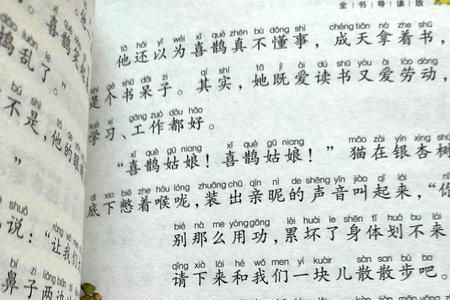 全书导读版
tā hái yǐ wéi xǐ què zhēn bù dǒng shì chéng tiān ná zhe shū
他还以为喜鹊真不懂事，成天拿着书，
是个书呆子。其实，她既爱读书又爱劳动，
xué xí gōng zuò dōu hǎo
学习、工作都好。
xǐ què gū niang xǐ què gū niang māo zài yín xìng shù
“喜鹊姑娘！喜鹊姑娘！”猫在银杏树
dǐ xià biē zhe hóu lóng zhuāng chū qīn nì de shēng yīn jiào qǐ lái nǐ
底下憋着喉咙，装出亲昵的声音叫起来，“你
bié nà me yòng gōng lèi huài le shēn tǐ huá bu lái
别那么用功，累坏了身体划不来
qǐng xià lái hé wǒ men yí kuàir sàn san bù ba
请下来和我们一块儿散散步吧。
鹊乱了。”
bú shì tā de
不是，他的眼
”
shuō
说：“让我们
bí zi
鼻子两边